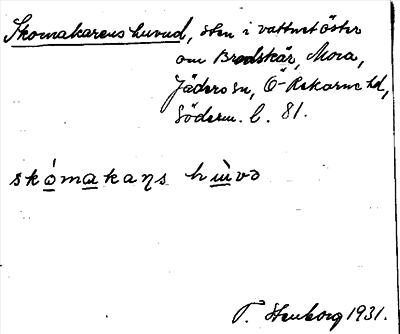 Skomakarens huvud, sten i vattnet öster
om Bredskär, Mora,
Jäders sn, Ö-Rekarne hd,
Söderm. l. 81.
skómakaɳs hùvə
T. Stenborg 1931.